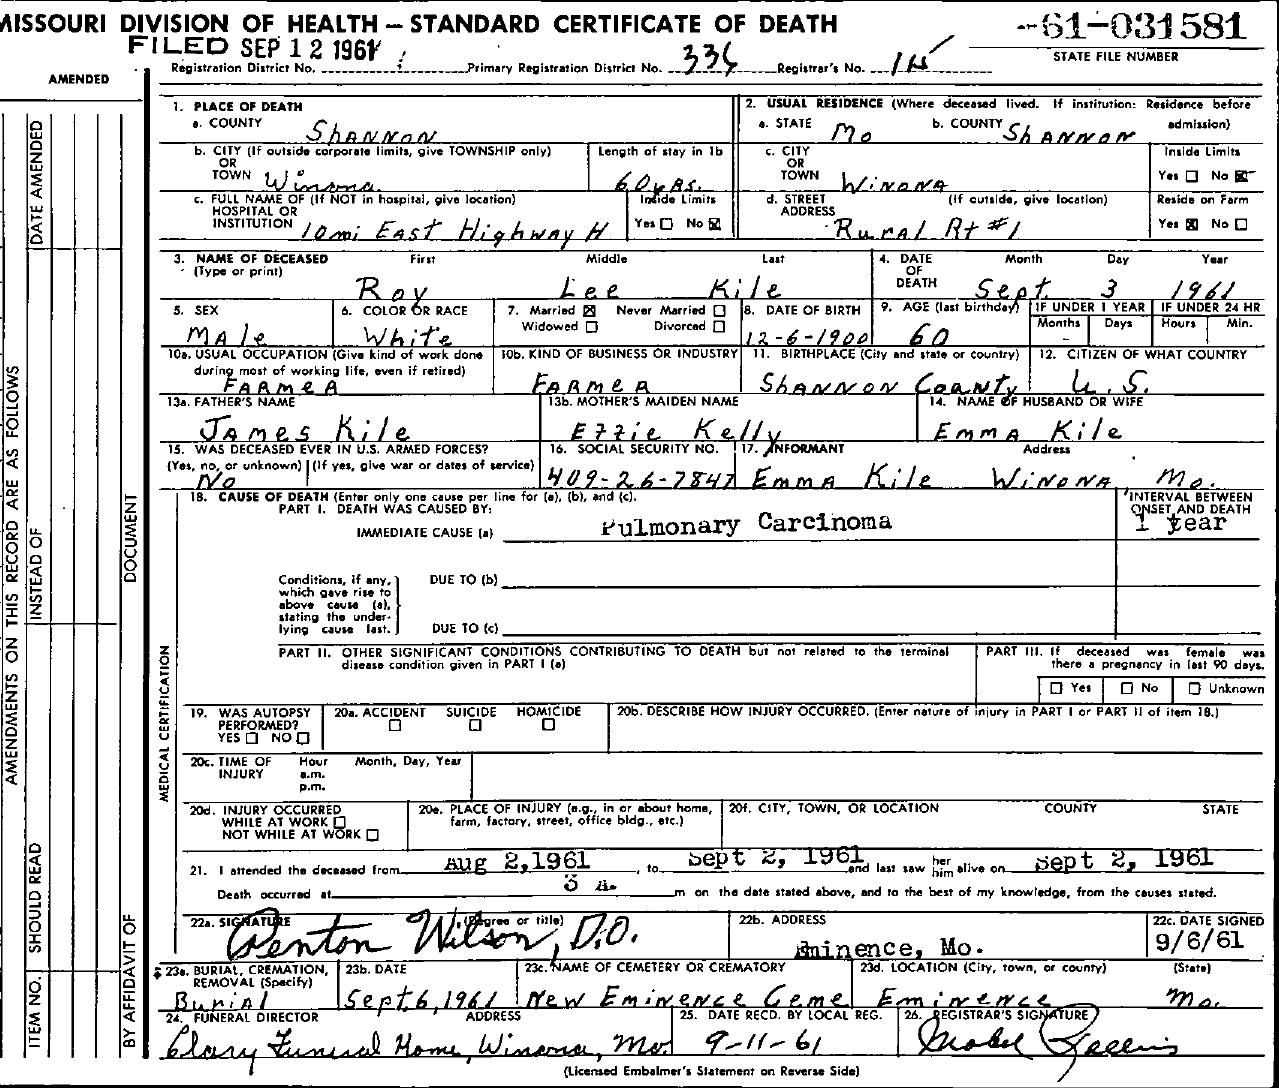 MISSOURI DIVISION OF HEALTH — STANDARD CERTIFICATE OF DEATH
-61-031581
STATE FILE NUMBER
FILED SEP 12 1961
Registration District No. Primary Registration District No. 336 Registrar's No.
AMENDED
DATE AMENDED
AMENDMENTS ON THIS RECORD ARE AS FOLLOWS
INSTEAD OF
DOCUMENT
SHOULD READ
ITEM NO.
BY AFFIDAVIT OF
MEDICAL CERTIFICATION
1. PLACE OF DEATH
a. COUNTY Shannon
2. USUAL RESIDENCE (Where deceased lived. If institution: Residence before admission)
a. STATE Mo b. COUNTY Shannon
b. CITY (If outside corporate limits, give TOWNSHIP only) OR TOWN Winona
Length of stay in 1b 60 yrs.
c. CITY OR TOWN Winona
Inside Limits Yes ☐ No ☒
c. FULL NAME OF (If NOT in hospital, give location) HOSPITAL OR INSTITUTION 10 mi East Highway H
Inside Limits Yes ☐ No ☒
d. STREET ADDRESS (If outside, give location) Rural Rt #1
Reside on Farm Yes ☒ No ☐
3. NAME OF DECEASED (Type or print) First Middle Last
Roy Lee Kile
4. DATE OF DEATH Month Day Year
Sept. 3 1961
5. SEX Male
6. COLOR OR RACE White
7. Married ☒ Never Married ☐ Widowed ☐ Divorced ☐
8. DATE OF BIRTH 12-6-1900
9. AGE (last birthday) 60
IF UNDER 1 YEAR Months Days
IF UNDER 24 HR Hours Min.
10a. USUAL OCCUPATION (Give kind of work done during most of working life, even if retired) Farmer
10b. KIND OF BUSINESS OR INDUSTRY Farmer
11. BIRTHPLACE (City and state or country) Shannon County
12. CITIZEN OF WHAT COUNTRY U.S.
13a. FATHER'S NAME James Kile
13b. MOTHER'S MAIDEN NAME Ezzie Kelly
14. NAME OF HUSBAND OR WIFE Emma Kile
15. WAS DECEASED EVER IN U.S. ARMED FORCES? (Yes, no, or unknown) (If yes, give war or dates of service) No
16. SOCIAL SECURITY NO. 409-26-7847
17. INFORMANT Address Emma Kile Winona, Mo.
18. CAUSE OF DEATH (Enter only one cause per line for (a), (b), and (c).
PART I. DEATH WAS CAUSED BY:
IMMEDIATE CAUSE (a) Pulmonary Carcinoma
INTERVAL BETWEEN ONSET AND DEATH 1 year
Conditions, if any, which gave rise to above cause (a), stating the underlying cause last.
DUE TO (b)
DUE TO (c)
PART II. OTHER SIGNIFICANT CONDITIONS CONTRIBUTING TO DEATH but not related to the terminal disease condition given in PART I (a)
PART III. If deceased was female was there a pregnancy in last 90 days.
☐ Yes ☐ No ☐ Unknown
19. WAS AUTOPSY PERFORMED? YES ☐ NO ☐
20a. ACCIDENT ☐ SUICIDE ☐ HOMICIDE ☐
20b. DESCRIBE HOW INJURY OCCURRED. (Enter nature of injury in PART I or PART II of item 18.)
20c. TIME OF INJURY Hour a.m. p.m. Month, Day, Year
20d. INJURY OCCURRED WHILE AT WORK ☐ NOT WHILE AT WORK ☐
20e. PLACE OF INJURY (e.g., in or about home, farm, factory, street, office bldg., etc.)
20f. CITY, TOWN, OR LOCATION COUNTY STATE
21. I attended the deceased from Aug 2,1961, to Sept 2, 1961 and last saw her him alive on Sept 2, 1961
Death occurred at 3 a. m on the date stated above, and to the best of my knowledge, from the causes stated.
22a. SIGNATURE (Degree or title) Denton Wilson, D.O.
22b. ADDRESS Eminence, Mo.
22c. DATE SIGNED 9/6/61
23a. BURIAL, CREMATION, REMOVAL (Specify) Burial
23b. DATE Sept. 6, 1961
23c. NAME OF CEMETERY OR CREMATORY New Eminence Ceme
23d. LOCATION (City, town, or county) (State) Eminence Mo.
24. FUNERAL DIRECTOR ADDRESS Clary Funeral Home, Winona, Mo.
25. DATE RECD. BY LOCAL REG. 9-11-61
26. REGISTRAR'S SIGNATURE Mabel
(Licensed Embalmer's Statement on Reverse Side)